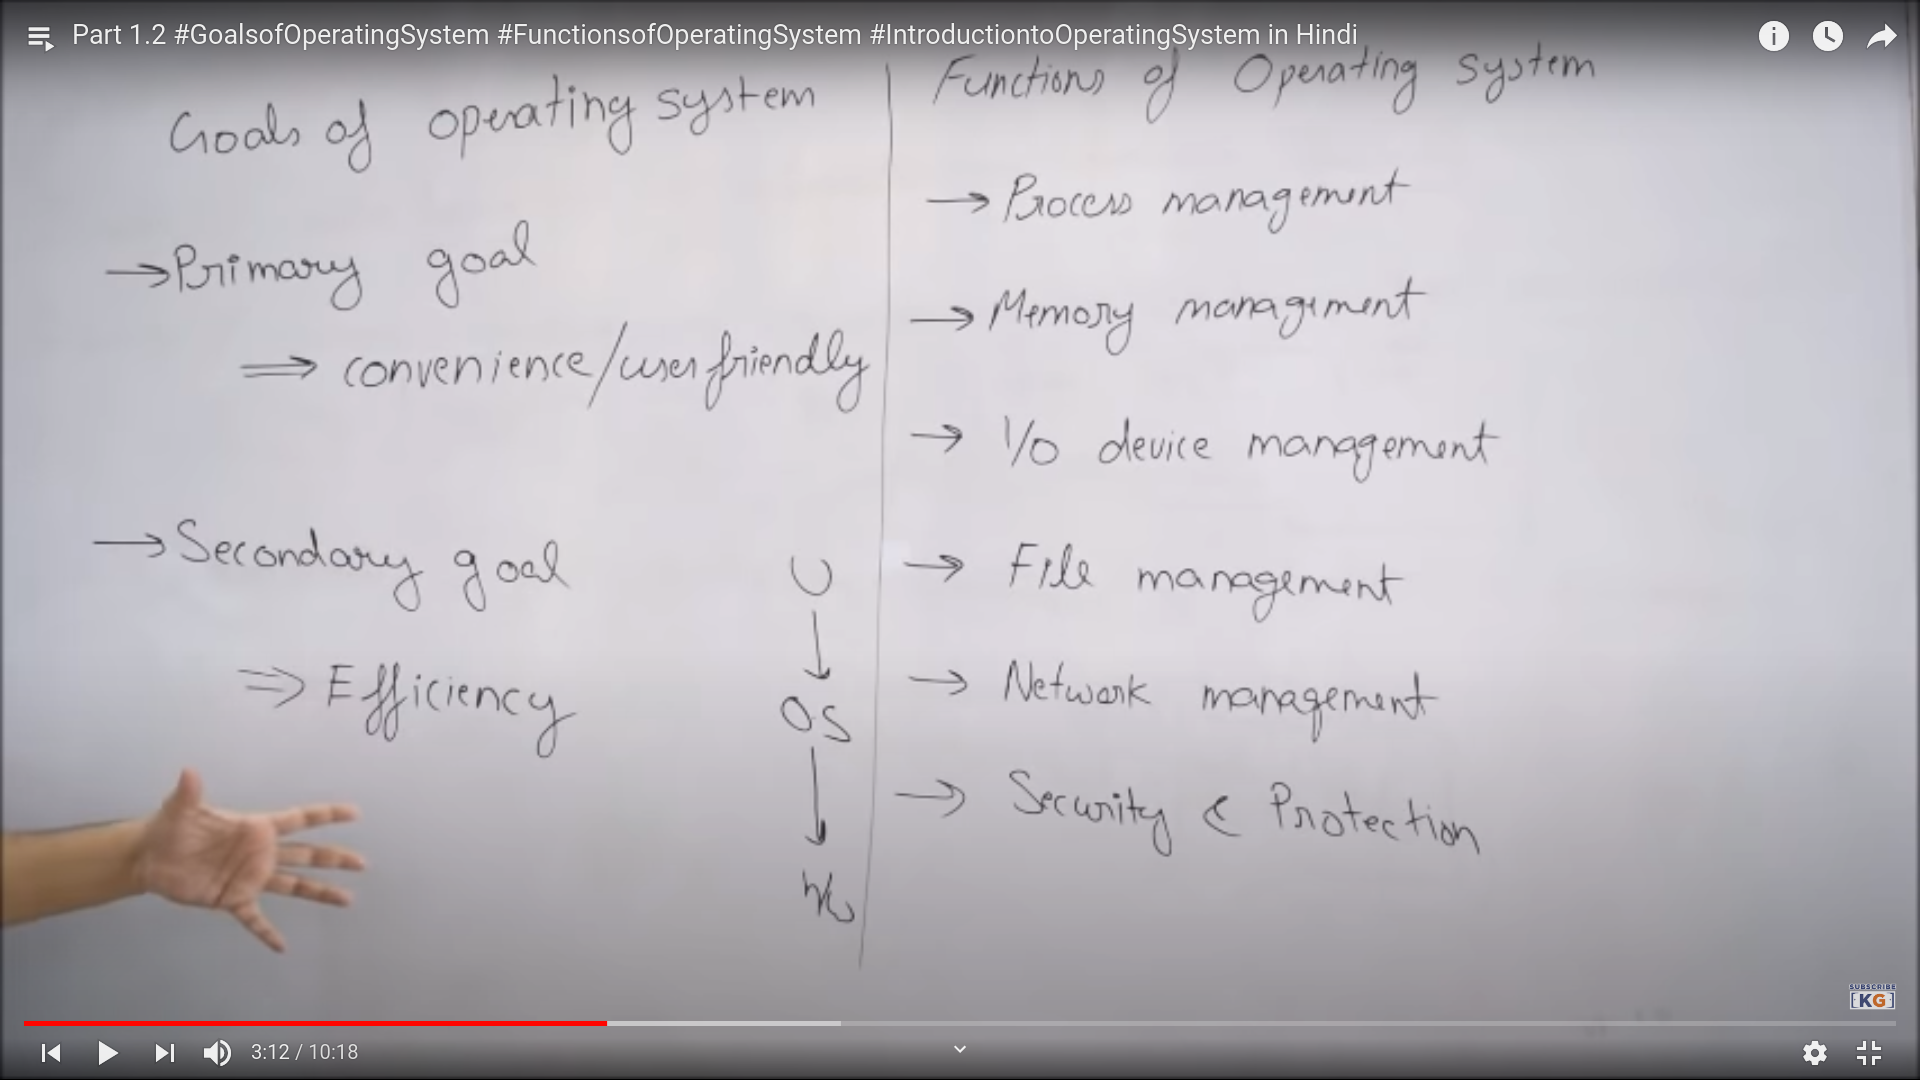 Part 1.2 #GoalsofOperatingSystem #FunctionsofOperatingSystem #IntroductiontoOperatingSystem in Hindi
Goals of operating system
→ Primary goal
⇒ convenience/user friendly
→ Secondary goal
⇒ Efficiency
U
↓
OS
↓
Functions of Operating system
→ Process management
→ Memory management
→ I/O device management
→ File management
→ Network management
→ Security & Protection
SUBSCRIBE
KG
3:12 / 10:18